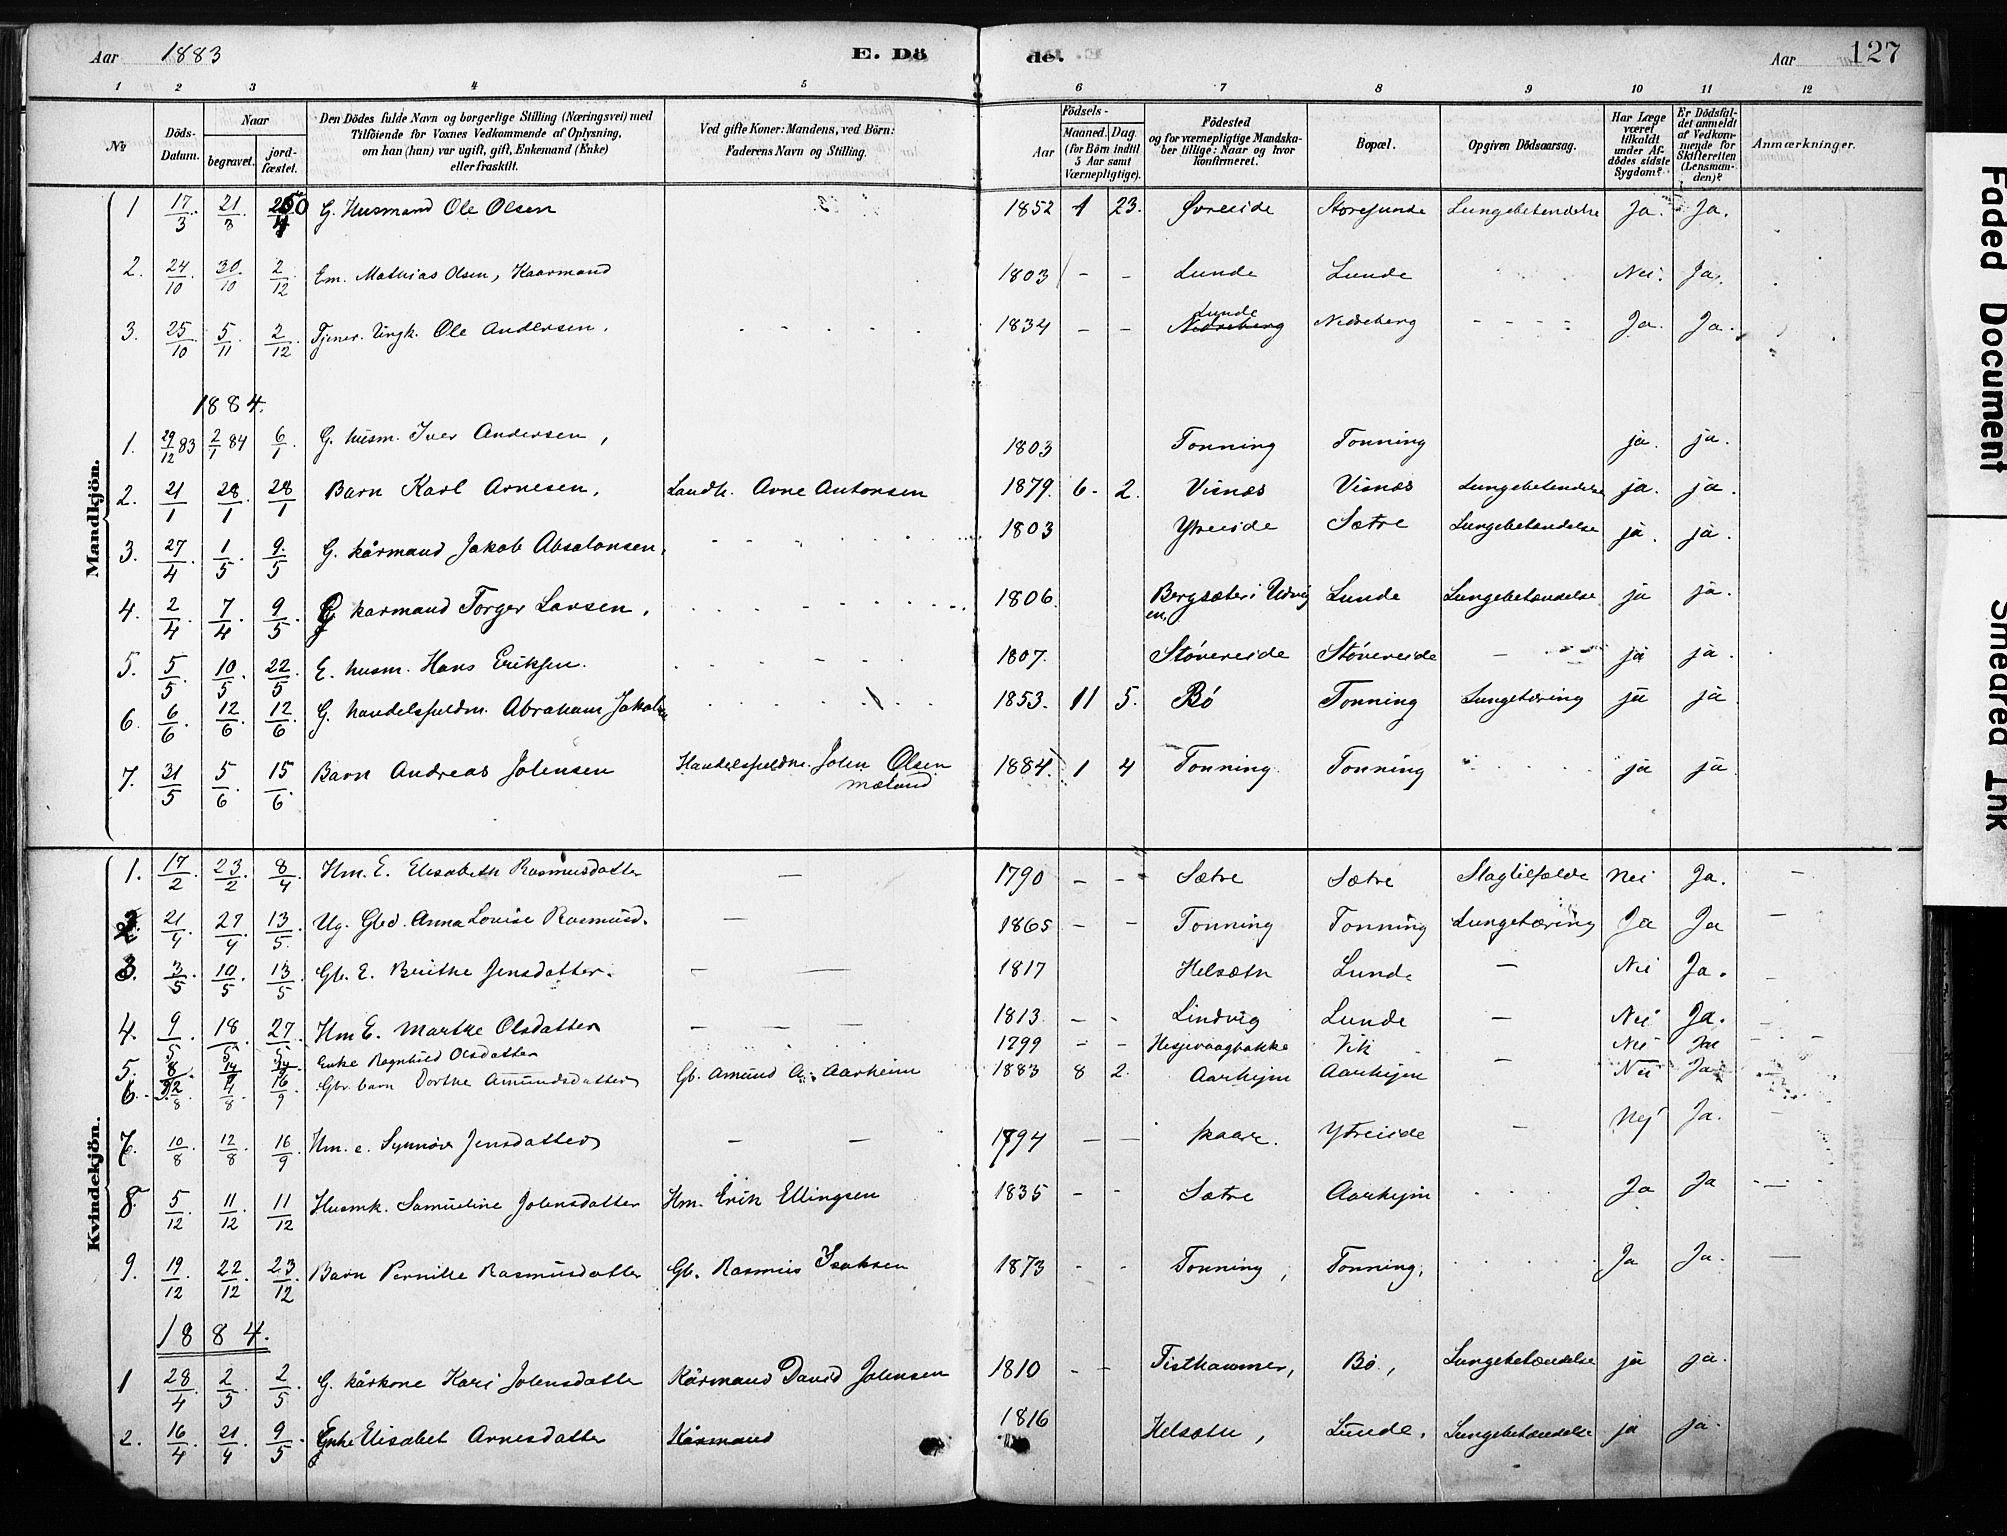 Aar 1883 E. Dö de. Aar 127
1 2 3 4 5 6 7 8 9 10 11 12
No Döds-Datum. Naar begravet. jordfæstet. Den Dödes fulde Navn og borgerlige Stilling (Næringsvei) med Tilföiende for Voxnes Vedkommende af Oplysning, om han (hun) var ugift, gift, Enkemand (Enke) eller fraskilt. Ved gifte Koner: Mandens, ved Börn: Faderens Navn og Stilling. Födsels- Aar Maaned. Dag. (for Börn indtil 5 Aar samt Værnepligtige). Födested og for værnepligtige Mandskaber tillige: Naar og hvor konfirmeret. Bopæl. Opgiven Dödsaarsag. Har Læge været tilkaldt under Afdödes sidste Sygdom? Er Dödsfaldet anmeldt af Vedkommende for Skifteretten (Lensmanden)? Anmærkninger.
Mandkjön.
1 17/3 21/3 G. Husmand Ole Olsen 1852 1 23. Øvreeide Storesunde Lungebetendelse Ja. Ja.
2. 24/10 30/10 2/12 Em. Mathias Olsen, Kaarmand 1803 - - Lunde Lunde Nei. Ja.
3. 25/10 5/11 2/12 Tjener. Ungk. Ole Andersen. 1834 - - Lunde Nedreberg Nedreberg Ja. Ja.
1884.
1. 29/12 83 2/1 84 6/1 G. husm. Iver Andersen, 1803 Tonning Tonning ja. ja.
2. 21/1 28/1 28/1 Barn Karl Arnesen, Landh. Arne Antonsen 1879. 6. 2. Visnæs Visnæs Lungebetendelse ja. ja.
3. 27/4 1/5 9/5 G. kårmand Jakob Absalonsen, 1803 Ytreeide Sætre Lungebetændelse ja. ja.
4. 2/4 7/4 9/5 G karmand Torger Larsen, 1806. Bergsæter i Udvigen, Lunde Lungebetændelse ja ja.
5. 5/5 10/5 22/5 E. husm. Hans Eriksen. 1807. Stövereide Stövereide - ja ja.
6. 6/6 12/6 12/6 G. handelsfuldm. Abraham Jakobsen 1853. 11 5. Bö Tonning Lungetæring ja ja
7. 31/5 5/6 15/6 Barn Andreas Johnsen Handelsfuldm. John Olsen Mæland 1884. 1 4 Tonning Tonning ja ja
Kvindekjön.
1. 17/2 23/2 8/4 Hm. E. Elisabeth Rasmusdatter - 1790 - - Sætre Sætre Slagtilfælde Nei Ja. -
2 21/4 27/4 13/5 Ug. Gbd. Anna Lovise Rasmusd. - 1865 - - Tonning Tonning Lungetæring Ja Ja -
3. 3/5 10/5 13/5 Gb. E. Berithe Jensdatter. - - 1817 Helsætn Lunde - Nei Ja. -
4. 9/5 18/5 27/5 Hm E. Marthe Olsdatter - - - 1813 - - Lindvig Lunde - Nei Ja. -
5. 8 Enke Ragnhild Olsdatter 1799 - - Hesjevaagbakke Vik Nei Ja
6. 9/8 16/9 Gbr. barn Dorthe Amundsdatter Gb. Amund A. Aarheim 1883 8 2. Aarhejm Aarhejm - Nei Ja
7. 10/8 12/8 16/9 Hm. e. Synnöve Jensdatter - - 1794 - - Skaare. Ytreeide - Nej Ja. -
8. 5/12 11/12 11/12 Husmk. Samueline Johnsdatter Hm. Erik Ellingsen 1835 - - Sætre Aarhejm Ja Ja -
9. 19/12 22/12 23/12 Barn Pernille Rasmusdatter Gb. Rasmus Isaksen 1873 - - Tonning, Tonning, Ja Ja. -
1884.
1 28/4 2/5 2/5 G. kårkone Kari Johnsdatter Kårmand David Johnsen 1810 - - Tisthammer, Bö, Lungebetændelse ja ja.
2. 16/4 21/4 9/5 Enke Elisabet Arnesdatter Kårmand 1816 Helsætn, Lunde. Lungebetændelse ja ja
Faded Document
Smeared Ink